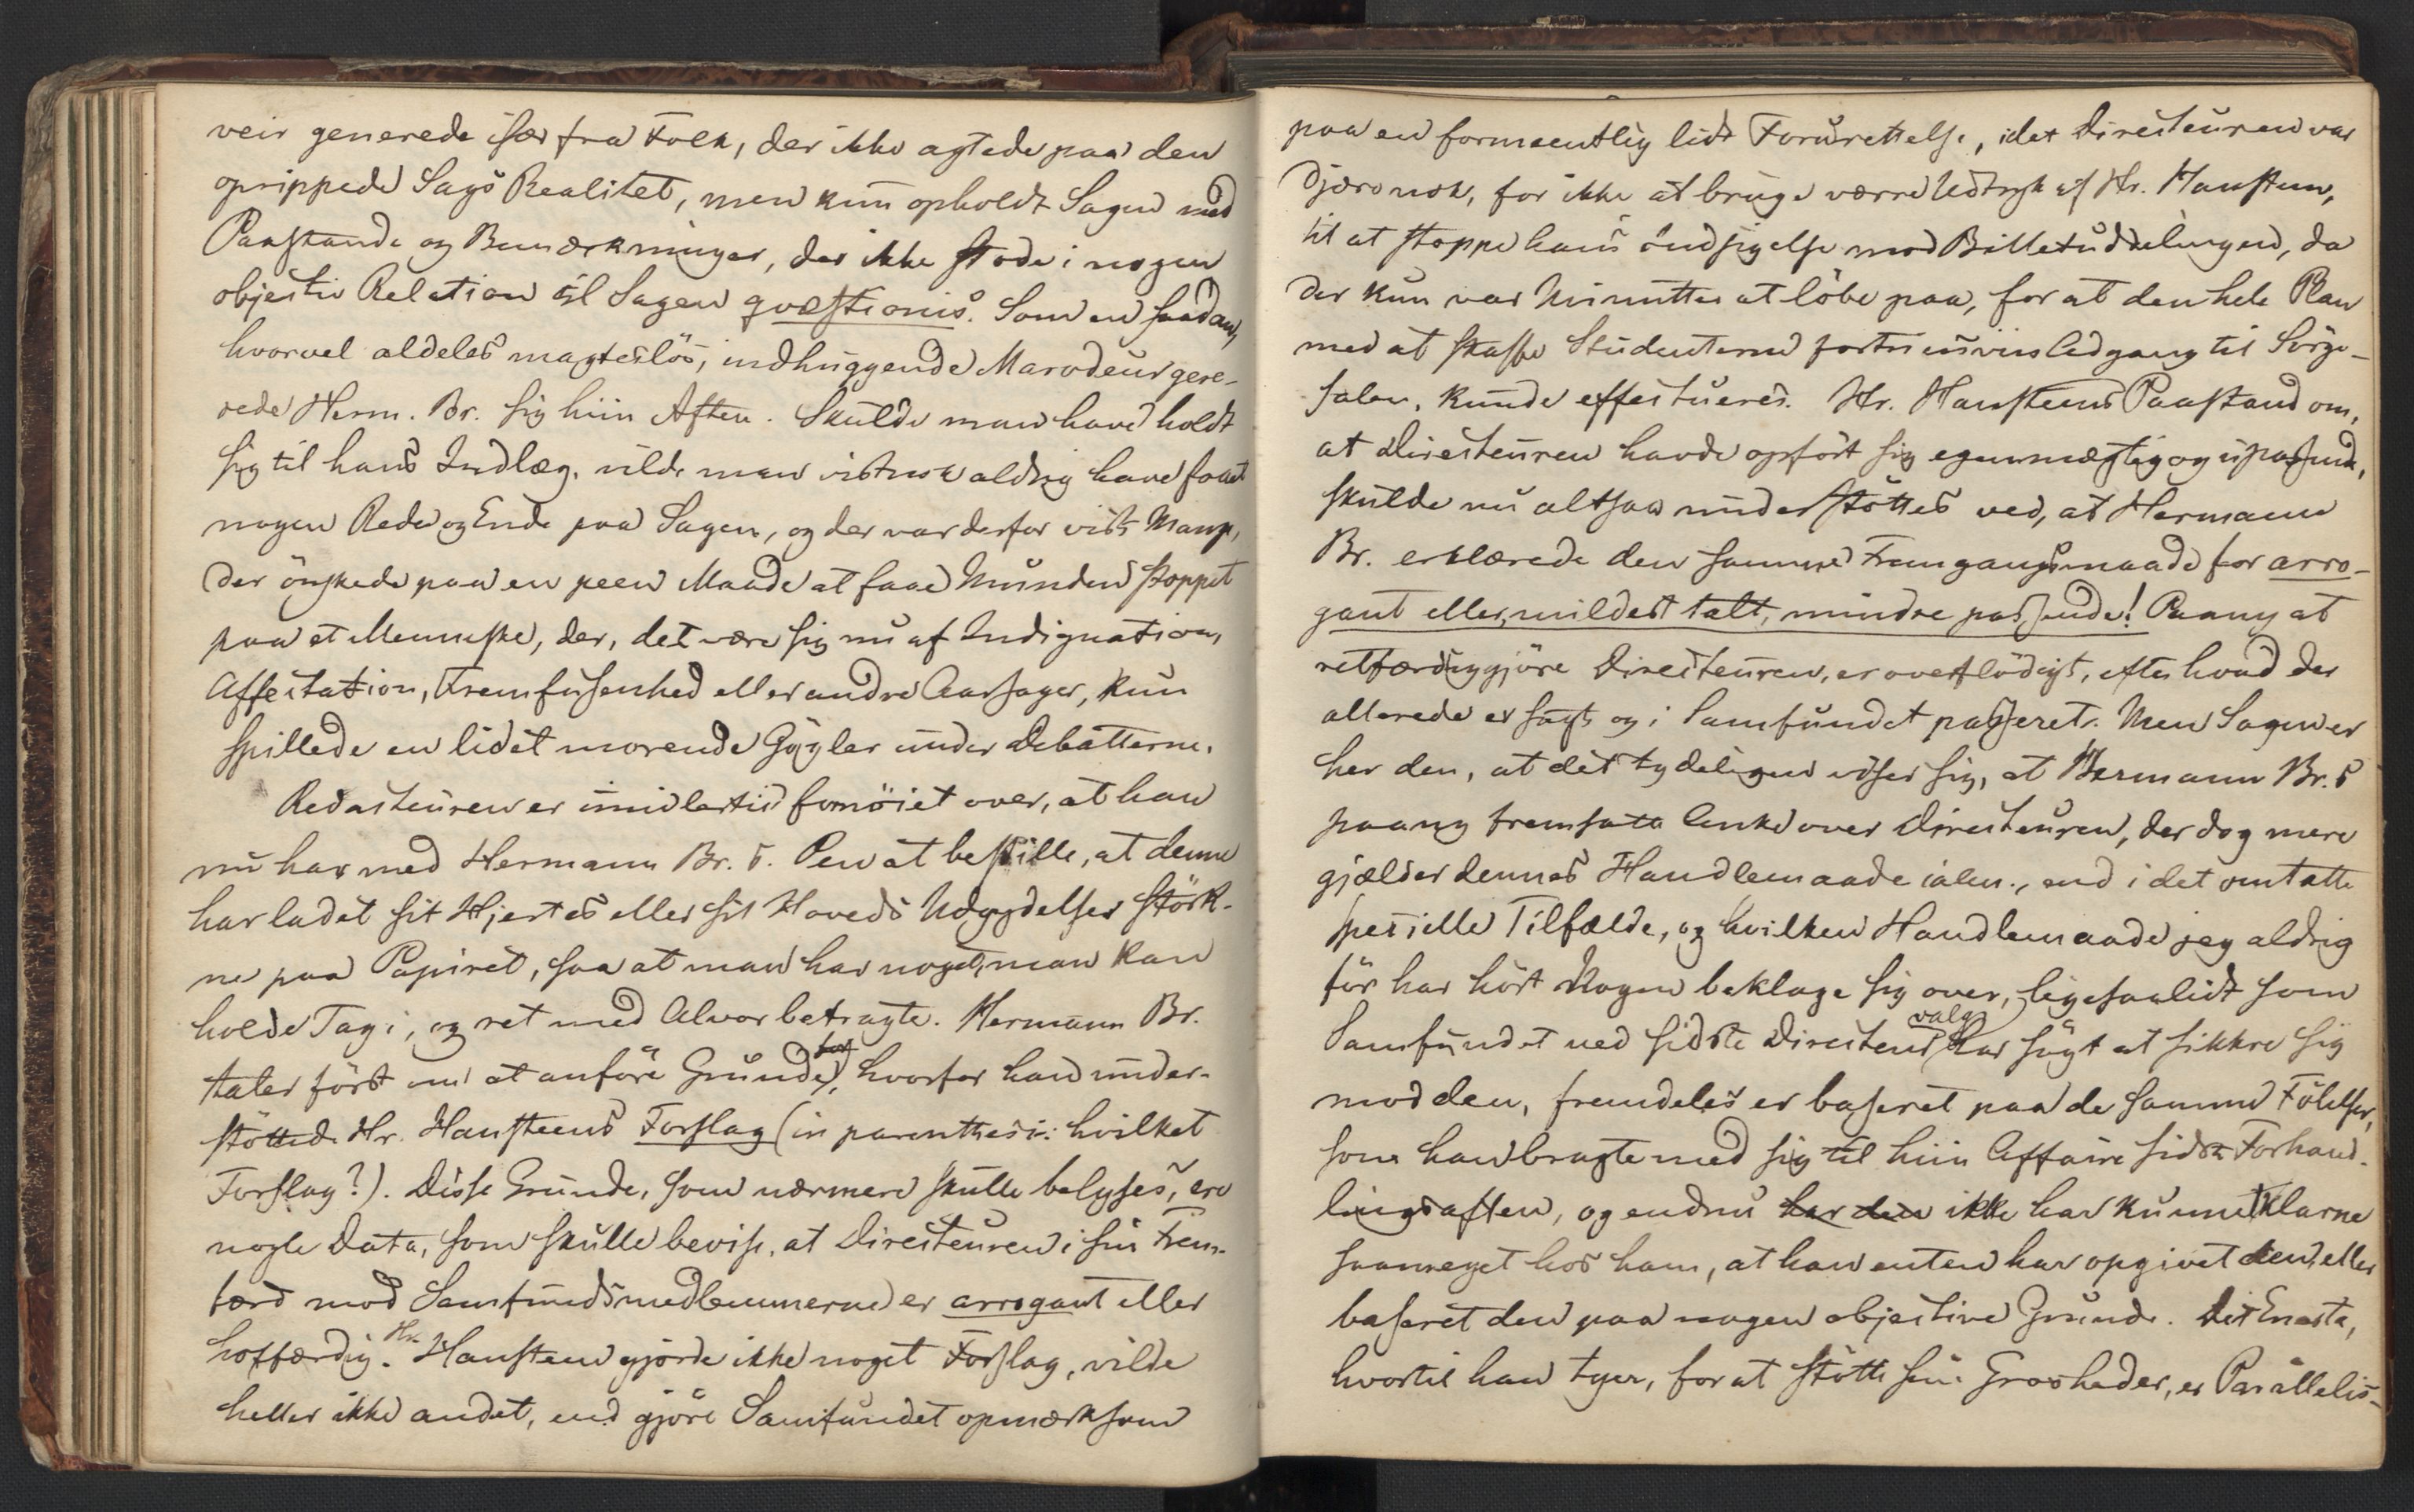 veir generede især fra Folk, der ikke agtede paa den
oprippede Sags Realitet, men kun opholdt Sagen med
Paastande og Bemærkninger, der ikke stode i nogen
objectiv Relation til Sagen qvæstionis. Som en saadan,
hvorvel aldeles magteslös, indhuggende Marodeur gere-
rede Herm. Br. sig hiin Aften. Skulde man have holdt
sig til hans Indlæg, vilde man vistnok aldrig have faaet
nogen Rede og Ende paa Sagen, og der var derfor vist Mange,
der önskede paa en peen Maade at faae Munden stoppet
paa et Menneske, der, det være sig nu af Indignation,
Affectation, Fremfusenhed eller andre Aarsager, kun
spillede en lidet morende Gjögler under Debatterne.
Redacteuren er imidlertid fornöiet over, at han
nu har med Hermann Br. s. Pen at bestille, at denne
har ladet sit Hjertes eller sit Hoveds Udgydelser störk-
ne paa Papiret, saa at man har noget, man kan
holde Tag i, og ret med Alvor betragte. Hermann Br.
taler först om at anföre Grunde for, hvorfor han under-
stöttede Hr. Hansteens Forslag (in parenthesi: hvilket
Forslag?). Disse Grunde, som nærmere skulle belyses, ere
nogle Data, som skulle bevise, at Directeuren i sin Frem-
færd mod Samfundsmedlemmerne er arrogant eller
hoffærdig. Hr. Hansteen gjorde ikke noget Forslag, vilde
heller ikke andet, end gjöre Samfundet opmærksom
paa en formeentlig lidt Forurettelse, idet Directeuren var
djærv nok, for ikke at bruge værre Udtryk af Hr. Hansteen,
til at stoppe hans Indsigelse mod Billetuddelingen, da
der kun var Minutter at löbe paa, for at den hele Plan
med at skaffe Studenterne fortrinsviis Adgang til Sörge-
salen, kunde effectueres. Hr. Hansteens Paastand om,
at Directeuren havde opfört sig egenmægtig og upassende,
skulde nu altsaa understöttes ved, at Hermann
Br. erklærede den samme Fremgangsmaade for arro-
gant eller, mildest talt, mindre passende! Paany at
retfærdiggjöre Directeuren, er overflödigt, efter hvad der
allerede er sagt og i Samfundet passeret. Men Sagen er
her den, at det tydeligen viser sig, at Hermann Br. s
paany fremsatte Anke over Directeuren, der dog mere
gjælder dennes Handlemaade ialm., end i det omtalte
specielle Tilfælde, og hvilken Handlemaade jeg aldrig
för har hört Nogen beklage sig over, ligesaalidt som
Samfundet ved sidste Directeurvalg har sögt at sikkre sig
mod den, fremdeles er baseret paa de samme Fölelser,
som han bragte med sig til hiin Affaire sidste Forhand-
lingsaften, og endnu har den ikke har kunnet klarne
saameget hos ham, at han enten har opgivet den, eller
baseret den paa nogen objective Grunde. Det Eneste,
hvortil han tyer, for at stötte sine Grovheder, er Parallelis-